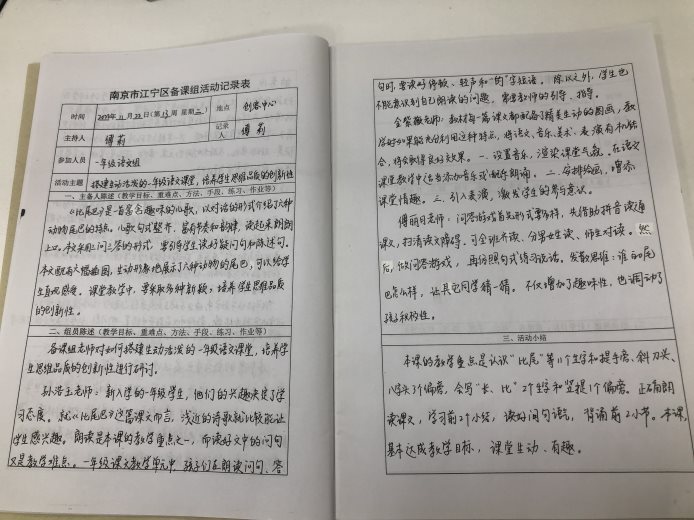 南京市江宁区备课组活动记录表
时间 2019年11月27日(第13周 星期三) 地点 创客中心
主持人 傅莉 记录人 傅莉
参加人员 一年级语文组
活动主题 搭建生动活泼的一年级语文课堂,培养学生思维品质的创新性
一、主备人陈述(教学目标、重难点、方法、手段、练习、作业等)
《比尾巴》是一首富含趣味的儿歌,以对话的形式介绍了六种
动物尾巴的特点。儿歌句式整齐,富有节奏和韵律,读起来朗朗
上口。本文采用三问三答的形式,要引导学生读好疑问句和陈述句。
本文配有大幅插图,生动形象地展示了六种动物的尾巴,可以给学
生直观感受。课堂教学中,要采取多种新颖,培养学生思维品质
的创新性。
二、组员陈述(教学目标、重难点、方法、手段、练习、作业等)
各课组老师对如何搭建生动活泼的一年级语文课堂,培养学
生思维品质的创新性进行研讨。
老师:新入学的一年级学生,他们的兴趣决定了学
习态度。就《比尾巴》这篇课文而言,浅近的诗歌就比较能让
学生感兴趣。朗读是本课的教学重点之一,而读好文中的问句
又是教学难点。一年级课文教学单元中,孩子们在朗读问句、答
句时,要读好停顿、轻声和“的”字短语。除此之外,学生也
不能意识到自己朗读的问题,需要教师的引导、指导。
金紫薇老师:教材每篇课文都配有了精美生动的图画,教
学时如果能充分利用这种特点,将语文、音乐、美术、表演有机结
合,将会取得良好效果。一、设置音乐,渲染课堂气氛。在语文
课堂教学中适当添加音乐或配乐朗诵。二、安排绘画,增添
课堂情趣。三、引入表演,激发学生的参与意识。
傅丽月老师:问答游戏首见形式要多样,先借助拼音读通
课文,扫清读文障碍。可全班齐读、分男女生读、师生对读。然
后,做问答游戏,再仿照句式练习说话。发散思维:谁的尾
巴怎么样,让其他同学猜一猜。不仅增加了趣味性,也调动了
孩子积极性。
三、活动小结
本课的教学重点是认识“比尾”等11个生字和提手旁、斜刀头、
八字头3个偏旁,会写“长、比”2个生字和竖提1个偏旁。正确朗
读课文,学习前2个小结,读好问句语气,背诵前2小节。本课
基本达成教学目标,课堂生动、有趣。